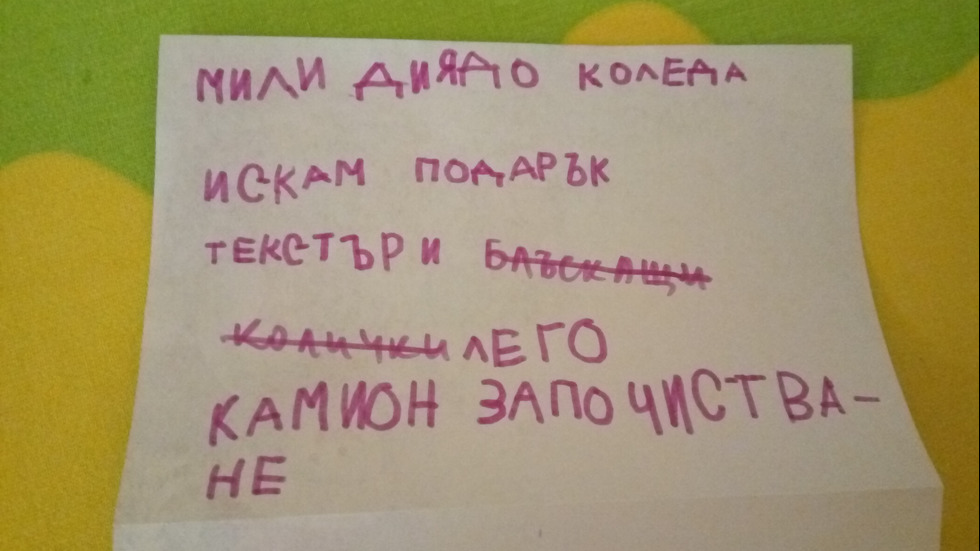 МИЛИ ДИЯДО КОЛЕДА
ИСКАМ ПОДАРЪК
ТЕКСТЪР И БЛЪСКАЩИ
КОЛИЧКИ ЛЕГО
КАМИОН ЗАПОЧИСТВА-
НЕ